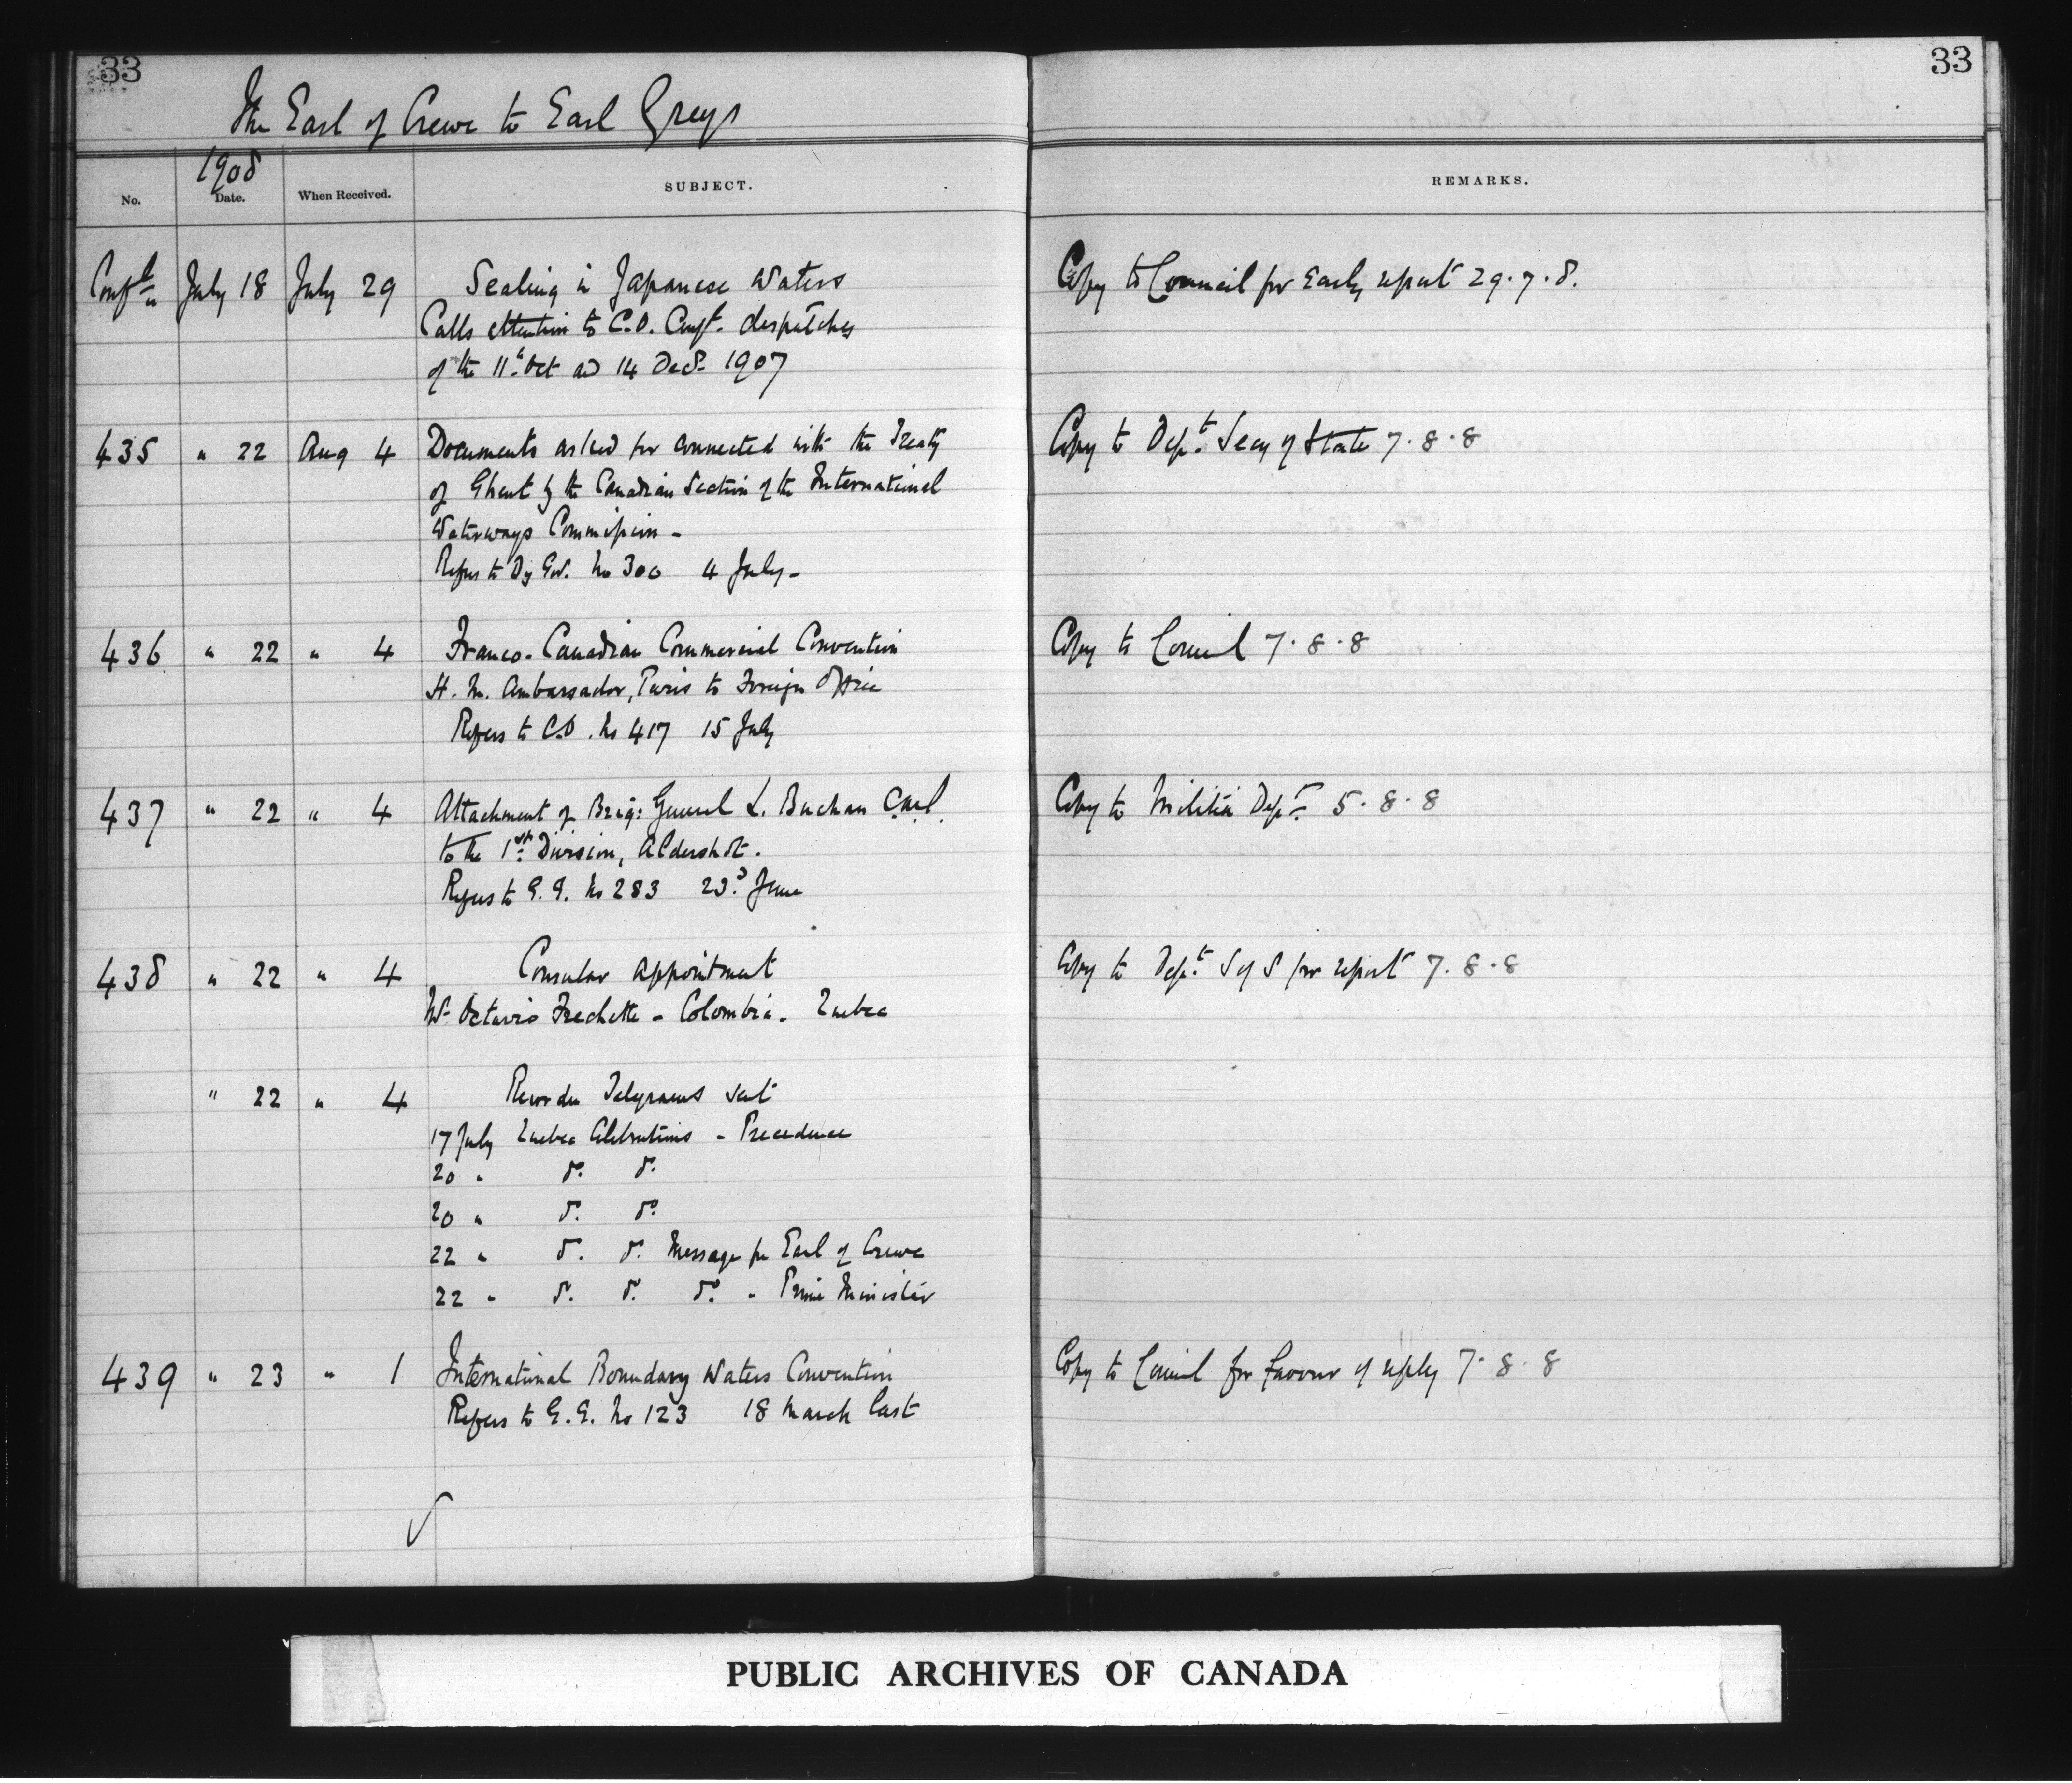 33
33
The Earl of Crewe to Earl Grey
1908
No. Date. When Received. SUBJECT. REMARKS.
Conf'l July 18 July 29 Sealing in Japanese Waters Copy to Council for Early report 29.7.8.
Calls attention to C.O. Conf'l. despatches
of the 11th Oct and 14 Decr. 1907
435 " 22 Aug 4 Documents asked for connected with the Treaty Copy to Dept. Secy of State 7.8.8
of Ghent by the Canadian Section of the International
Waterways Commission -
Refers to Dy Gov. No 300 4 July -
436 " 22 " 4 Franco-Canadian Commercial Convention Copy to Council 7.8.8
H. M. Ambassador, Paris to Foreign Office
Refers to C.O. No 417 15 July
437 " 22 " 4 Attachment of Brig: General L. Buchan C.M.G. Copy to Militia Dept. 5.8.8
to the 1st Division, Aldershot.
Refers to G.G. No 283 23d June
438 " 22 " 4 Consular Appointment Copy to Dept. S of S for report 7.8.8
Mr. Octavio Frechette - Colombia - Quebec
" 22 " 4 Recorder Telegrams sent
17 July Quebec Celebrations - Precedence
20 " do. do.
20 " do. do.
22 " do. do. Message for Earl of Crewe
22 " do. do. do. " Prime Minister
439 " 23 " 1 International Boundary Waters Convention Copy to Council for favour of reply 7.8.8
Refers to G.G. No 123 18 March last
PUBLIC ARCHIVES OF CANADA